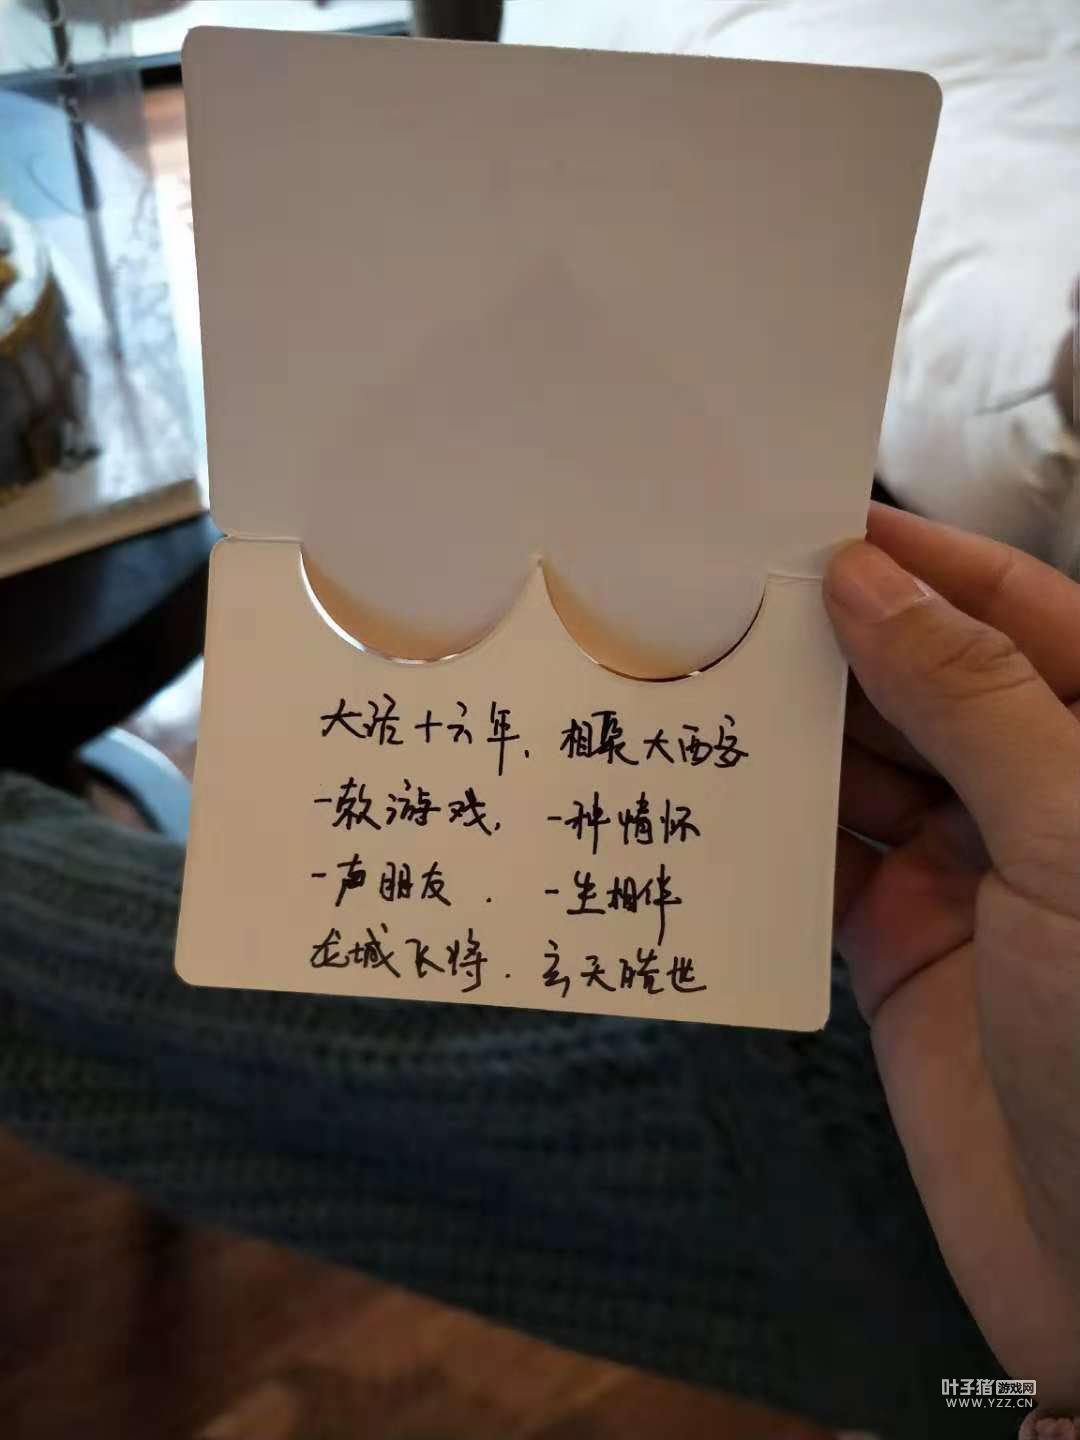 大话十六年、相聚大西安
一款游戏、一种情怀
一声朋友．一生相伴
龙城飞将．玄天皓世
叶子猪游戏网
WWW.YZZ.CN